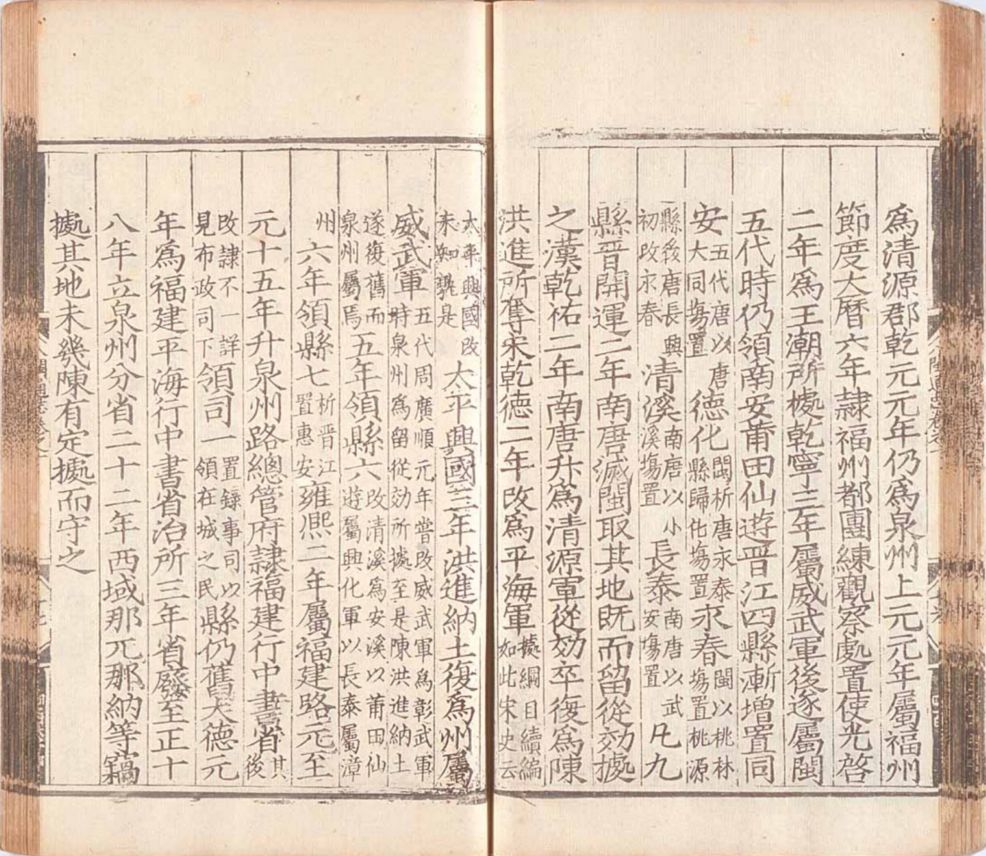 為清源郡乾元元年仍為泉州上元元年屬福州
節度大曆六年隸福州都團練觀察處置使光啓
二年為王潮所㩀乾寧三年屬威武軍後遂屬閩
五代時仍領南安莆田仙遊晉江四縣漸增置同
安五代唐以唐大同場置德化閩析唐永泰縣歸化場置永春閩以桃林場置桃源
縣後唐長興初改永春清溪南唐以小溪場置長泰南唐以武安場置凡九
縣晉開運二年南唐滅閩取其地既而留從効㩀
之漢乾祐二年南唐升為清源軍從効卒復為陳
洪進所奪宋乾德二年改為平海軍㩀綱目續編如此宋史云
太平興國改未知孰是太平興國三年洪進納土復為州屬
威武軍五代周廣順元年嘗改威武軍為彰武軍時泉州為留從効所㩀至是陳洪進納土
遂復舊而泉州屬焉五年領縣六改清溪為安溪以莆田仙遊屬興化軍以長泰屬漳
州六年領縣七析晉江置惠安雍熙二年屬福建路元至
元十五年升泉州路總管府隸福建行中書省其後
改隸不一詳見布政司下領司一置錄事司以領在城之民縣仍舊大德元
年為福建平海行中書省治所三年省發至正十
八年立泉州分省二十二年西域那兀那納等竊
㩀其地未幾陳有定㩀而守之